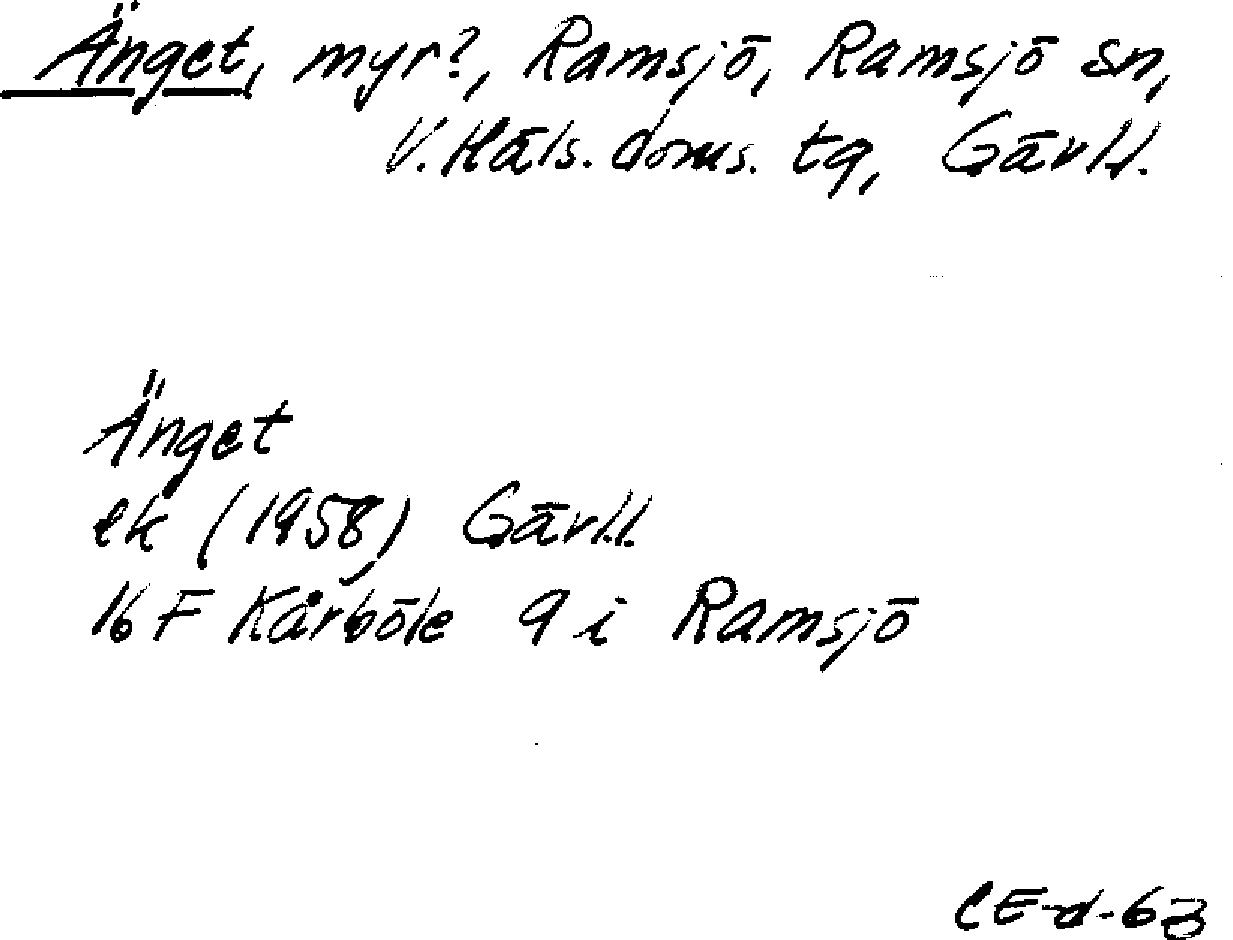 Änget, myr?, Ramsjö, Ramsjö sn,
V. Häls. doms. tg, Gävl.l.
Änget
ek (1958) Gävl.l.
16 F Kårböle 9 i Ramsjö
CE-d-63